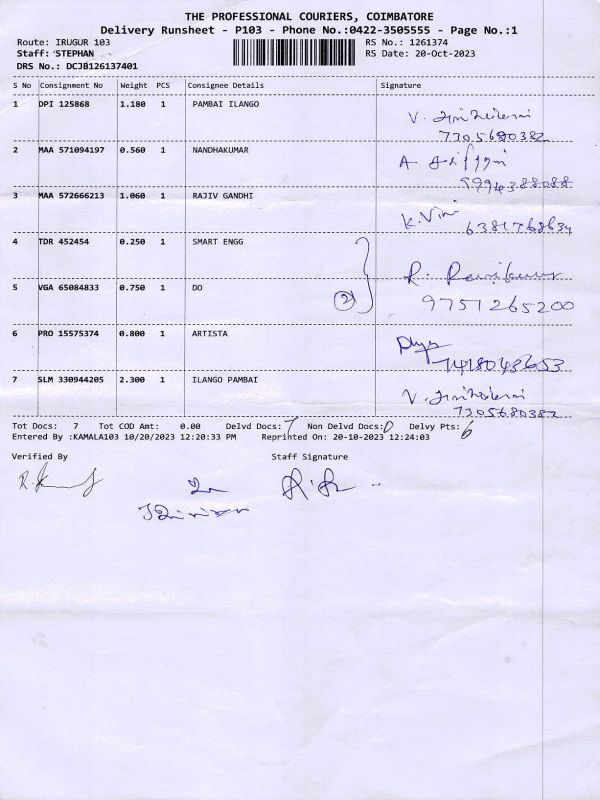 THE PROFESSIONAL COURIERS, COIMBATORE
Delivery Runsheet - P103 - Phone No.:0422-3505555 - Page No.:1
Route: IRUGUR 103 RS No.: 1261374
Staff: STEPHAN RS Date: 20-Oct-2023
DRS No.: DCJB126137401
S No Consignment No Weight PCS Consignee Details Signature
1 DPI 125868 1.180 1 PAMBAI ILANGO
7305680382
2 MAA 571094197 0.560 1 NANDHAKUMAR
9994388088
3 MAA 572666213 1.060 1 RAJIV GANDHI
K. Vini 6381768634
4 TDR 452454 0.250 1 SMART ENGG
R. Ravikumar
5 VGA 65084833 0.750 1 DO 2
9751265200
6 PRO 15575374 0.800 1 ARTISTA
7418043653
7 SLM 330944205 2.300 1 ILANGO PAMBAI
7305680382
Tot Docs: 7 Tot COD Amt: 0.00 Delvd Docs: 7 Non Delvd Docs: 0 Delvy Pts: 6
Entered By :KAMALA103 10/20/2023 12:20:33 PM Reprinted On: 20-10-2023 12:24:03
Verified By Staff Signature